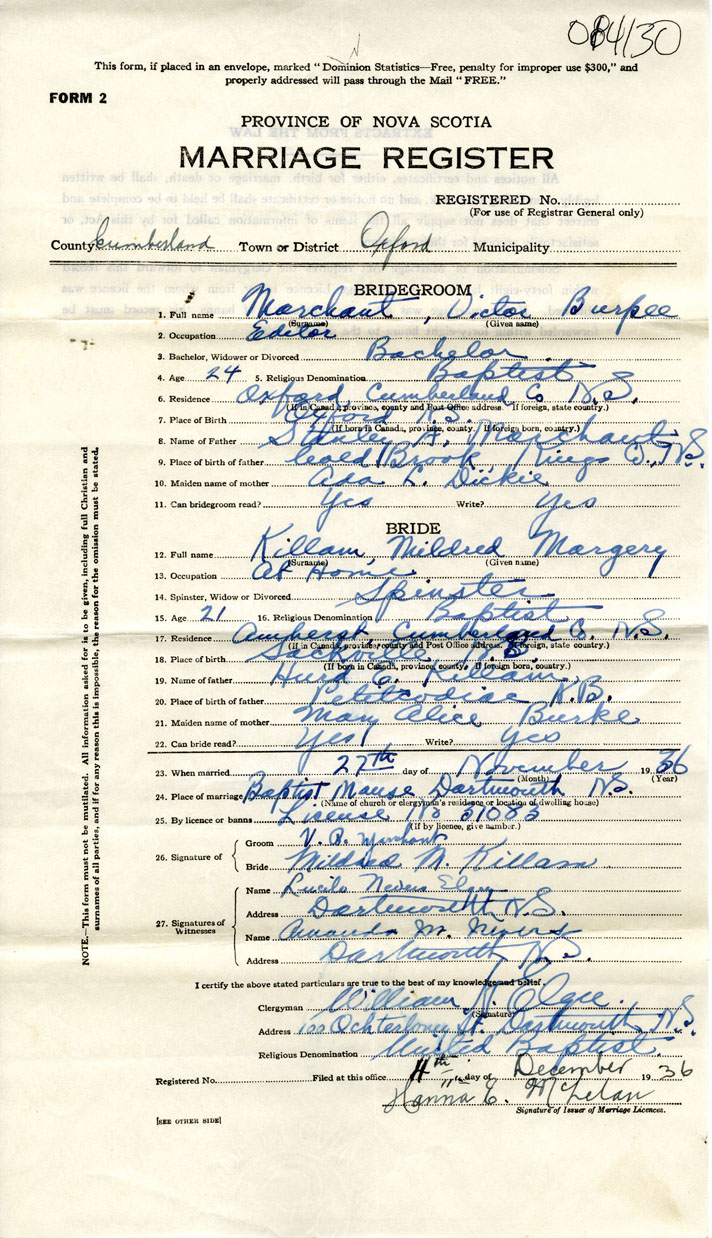 084130
This form, if placed in an envelope, marked "Dominion Statistics—Free, penalty for improper use $300," and
properly addressed will pass through the Mail "FREE."
FORM 2
PROVINCE OF NOVA SCOTIA
MARRIAGE REGISTER
REGISTERED No.
(For use of Registrar General only)
County Cumberland Town or District Oxford Municipality
BRIDEGROOM
1. Full name Marchant, Victor Burpee
(Surname) (Given name)
2. Occupation Editor
3. Bachelor, Widower or Divorced Bachelor
4. Age 24 5. Religious Denomination Baptist
6. Residence Oxford, Cumberland Co N.S.
(If in Canada, province, county and Post Office address. If foreign, state country.)
7. Place of Birth Oxford N.S.
(If born in Canada, province, county. If foreign born, country.)
8. Name of Father Stanley A. Marchant
9. Place of birth of father Coldbrook, Kings Co., N.S.
10. Maiden name of mother Ada L. Dickie
11. Can bridegroom read? Yes Write? Yes
BRIDE
12. Full name Killam, Mildred Margery
(Surname) (Given name)
13. Occupation At Home
14. Spinster, Widow or Divorced Spinster
15. Age 21 16. Religious Denomination Baptist
17. Residence Amherst, Cumberland Co. N.S.
(If in Canada, province, county and Post Office address. If foreign, state country.)
18. Place of birth Sackville N.B.
(If born in Canada, province, county. If foreign born, country.)
19. Name of father Hurd C. Killam
20. Place of birth of father Petitcodiac N.B.
21. Maiden name of mother Mary Alice Burke
22. Can bride read? Yes Write? Yes
23. When married 27th day of November 1936
(Month) (Year)
24. Place of marriage Baptist Manse, Dartmouth N.S.
(Name of church or clergyman's residence or location of dwelling house)
25. By licence or banns License No 51083
(If by licence, give number.)
26. Signature of
Groom V. B. Marchant
Bride Mildred M. Killam
27. Signatures of Witnesses
Name Lucile Nevers Elgee
Address Dartmouth N.S.
Name Amanda M. Myers
Address Dartmouth N.S.
I certify the above stated particulars are true to the best of my knowledge and belief.
Clergyman William N. Elgee.
(Signature)
Address 100 Ochterloney St. Dartmouth N.S.
Religious Denomination United Baptist
Registered No. Filed at this office 4th day of December 1936
Hanna C. McLelan
Signature of Issuer of Marriage Licences.
[SEE OTHER SIDE]
NOTE.—This form must not be mutilated. All information asked for is to be given, including full Christian and
surnames of all parties, and if for any reason this is impossible, the reason for the omission must be stated.